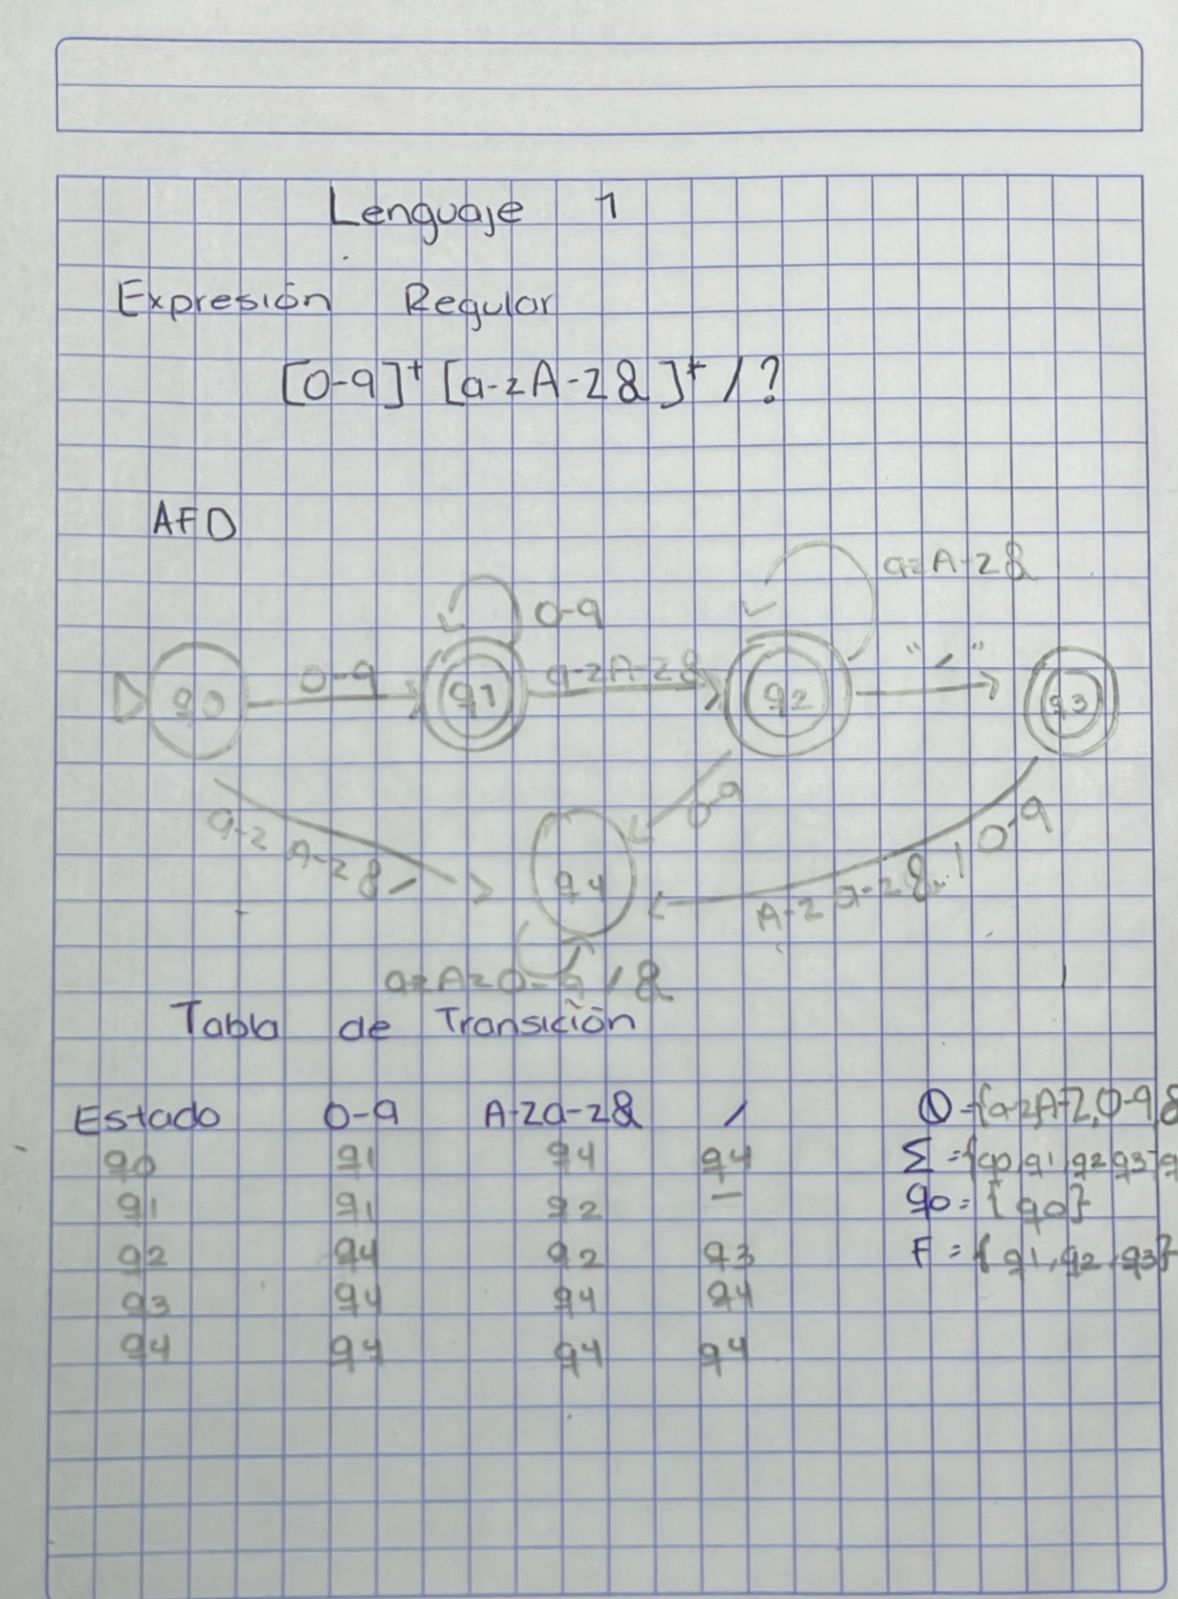 Lenguaje 1
Expresión Regular
[0-9]+ [a-zA-Z&]* /?
AFD
a-zA-Z&
0-9
q0 0-9 q1 a-zA-Z& q2 "/" q3
0-9
a-z A-Z & /
q4
A-Z a-z & / 0-9
a-zA-Z0-9 / &
Tabla de Transición
Estado 0-9 A-Za-z& /
q0 q1 q4 q4
q1 q1 q2 –
q2 q4 q2 q3
q3 q4 q4 q4
q4 q4 q4 q4
Q={a-zA-Z,0-9,&
Σ={q0,q1,q2,q3,q
q0={q0}
F={q1,q2,q3}